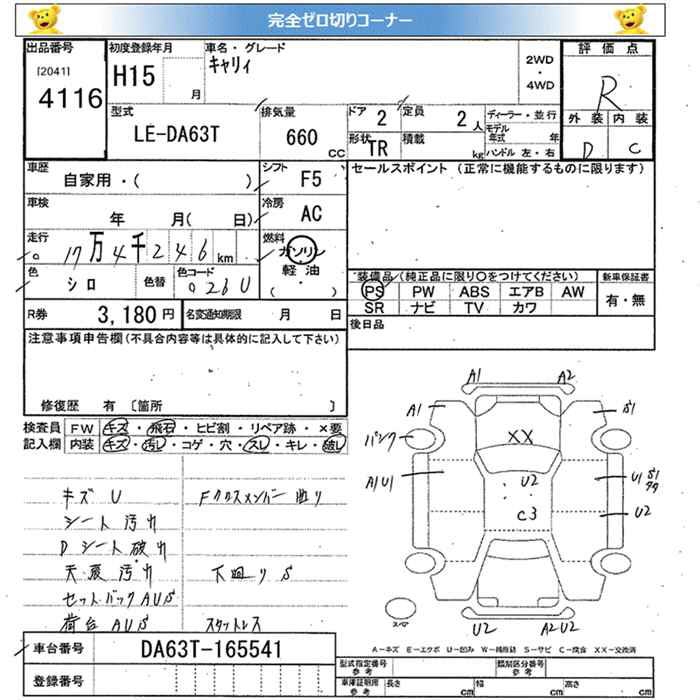 完全ゼロ切りコーナー
出品番号 初度登録年月 車名・グレード 評価点
[2041] 4116 H15 月 キャリィ 2WD・4WD R
型式 排気量 ドア 定員 ディーラー・並行 外装 内装
LE-DA63T 660 CC 2 2 人 モデル年式 年 D C
形状 TR 積載 kg ハンドル 左・右
車歴 シフト セールスポイント (正常に機能するものに限ります)
自家用・( ) F5
車検 冷房
年 月( ) AC
走行 燃料
17万4千246 km ガソリン・軽油 ( )
色 シロ 色替 色コード 026U
装備品/(純正品に限り○をつけてください) 新車保証書
PS PW ABS エアB AW 有・無
SR ナビ TV カワ
R券 3,180円 名変通知期限 月 日 後日品
注意事項申告欄(不具合内容等は具体的に記入して下さい)
修復歴 有 〔箇所 〕
検査員 FW キズ・飛石・ヒビ割・リペア跡・×要
記入欄 内装 キズ・汚し・コゲ・穴・スレ・キレ・破し
キズ U Fクロスメンバー曲り
シート 汚れ
D シート 破れ
天張 汚れ 下回り S
セットバック AUS
荷台 AUS スタットレス
A1 A2
A1 S1
パンク XX
A1U1 U2 U1 S1
C3 U2
U2 A2U2
A-キズ E-エクボ U-凹み W-補修跡 S-サビ C-腐食 XX-交換済
車台番号 DA63T-165541
登録番号
型式指定番号 参考 類別区分番号 参考
車庫証明用 参考 長さ cm 幅 cm 高さ cm